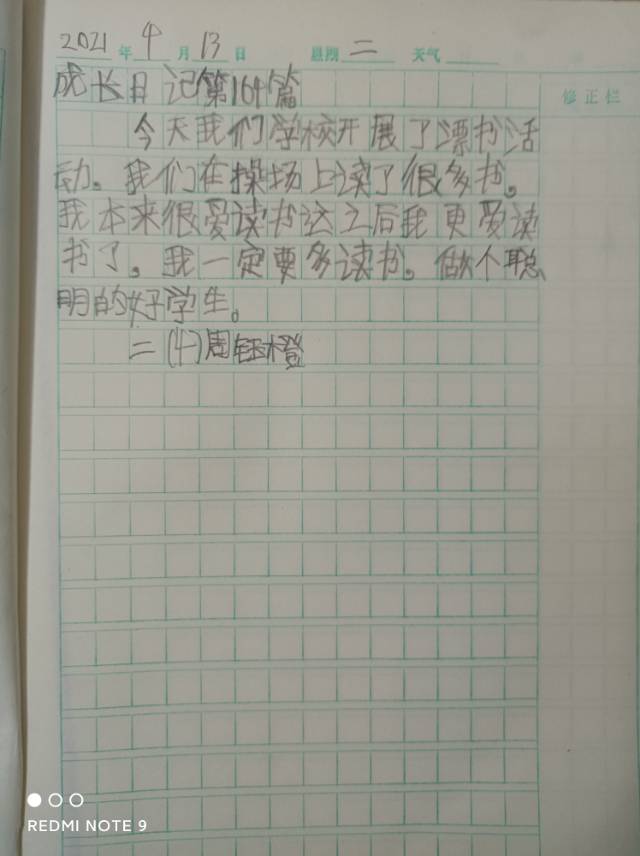 2021年4月13日 星期二 天气
成长日记第164篇
修正栏
今天我们学校开展了漂书活
动。我们在操场上读了很多书。
我本来很爱读书这之后我更爱读
书了。我一定要多读书。做个聪
明的好学生。
二(十)周钰橙
REDMI NOTE 9